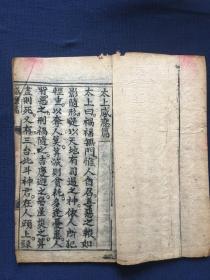 太上感應篇
太上曰禍福無門惟人自召善惡之報如
影隨形是以天地有司過之神依人所犯
輕重以奪人算算減則貧耗多逢憂患人
皆惡之刑禍隨之吉慶避之惡星災之算
盡則死又有三台北斗神君在人頭上錄